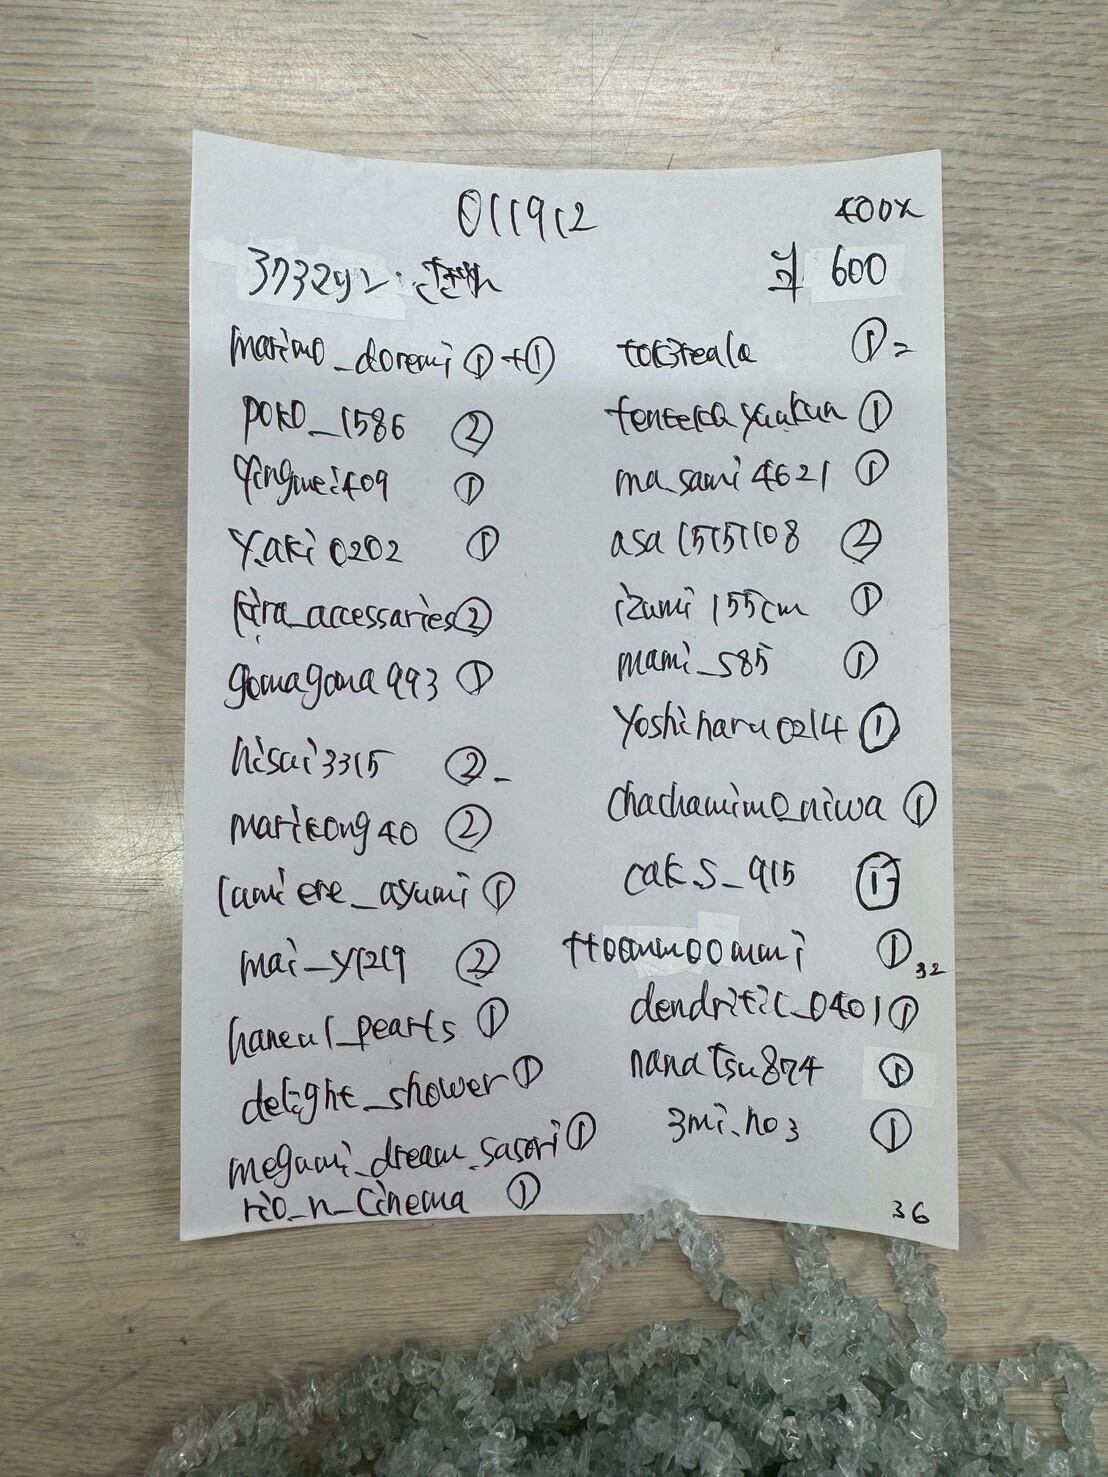 011912
400x
600
marimo_doremi ①+①
poko_1586 ②
yingmei409 ①
Y.aki0202 ①
kira_accessaries ②
gomagoma993 ①
hisai3315 ②-
marikong40 ②
lumiere_ayumi ①
mai_y1219 ②
haneul_pearls ①
delight_shower ①
megumi_dream_sasori ①
rio_n_cinema ①
①=
yuukun ①
ma.sami4621 ①
asa15151108 ②
izumi155cm ①
mami_s85 ①
yoshiharu0214 ①
chachamimo_niwa ①
cak.s_915 ①
ttoammoommi ① 32
dendritic_0401 ①
nanatsu874 ①
3mi.no3 ①
36